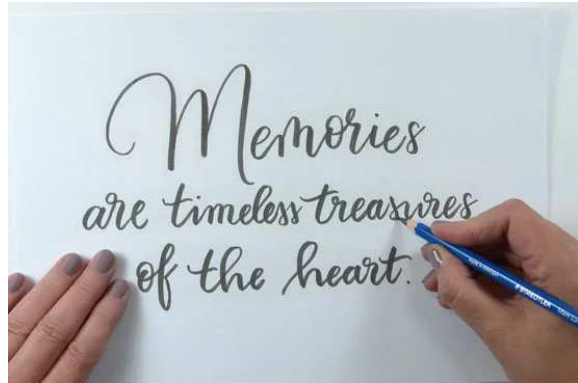 Memories
are timeless treasures
of the heart.
STAEDTLER